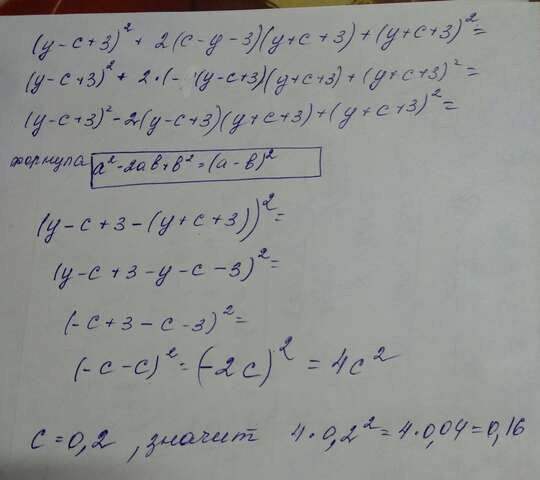 (y-c+3)² + 2(c-y-3)(y+c+3)+(y+c+3)²=
(y-c+3)² + 2·(- (y-c+3)(y+c+3)+(y+c+3)²=
(y-c+3)²-2(y-c+3)(y+c+3)+(y+c+3)²=
формула a²-2ab+b²=(a-b)²
(y-c+3-(y+c+3))²=
(y-c+3-y-c-3)²=
(-c+3-c-3)²=
(-c-c)²=(-2c)²=4c²
c=0,2, значит 4·0,2²=4·0,04=0,16